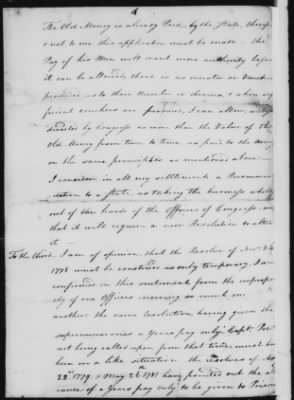 The Old Money is already Paid by the State, therefore
& not to me this application must be made – the
Pay of his Men will want more authority before
it can be allowed, there is no muster or Voucher
produced as to their Number or Service, & when any
vouchers are produced, I can allow,
directed by Congress no more than the Value of the
Old Money from time to time as paid to the Army
on the same principles as mentioned above –
I consider in all my settlements a Recommen-
dation to a State, as taking the business wholly
out of the hands of the Officers of Congress and
that it will require a new Resolution to alter
it –
To the third. I am of opinion that the Resolve of Nov. 24
1778 must be construed as only temporary. I am
confirmed in this sentiment from the impropri-
ety of one Officers receiving so much more
another. the same resolution having given the
supernumeraries a Years pay only. Capt.
not being called upon from that time must have
been in a like situation the Resolves of
22nd 1779 & May 26th 1781 have pointed out the
ance of a Years pay only to be given to